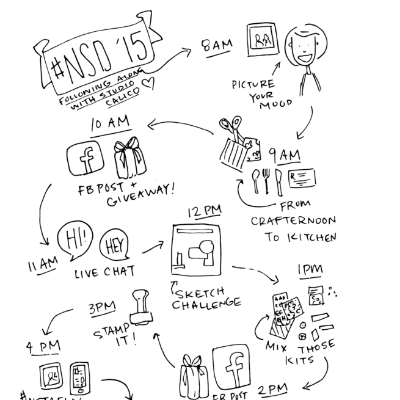 #NSD '15
FOLLOWING ALONG
WITH STUDIO
CALICO
8AM
PICTURE
YOUR
MOOD
9AM
FROM
CRAFTERNOON
TO KITCHEN
10 AM
f
FB POST +
GIVEAWAY!
11AM
HI!
HEY
LIVE CHAT
12 PM
SKETCH
CHALLENGE
1PM
MIX THOSE
KITS
2PM
f
FB POST
3PM
STAMP
IT!
4 PM